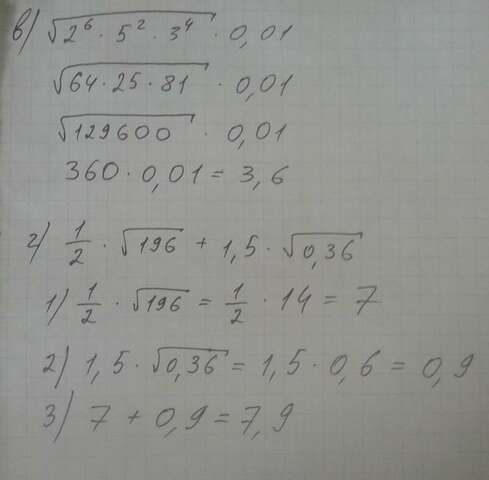 в) √2⁶ · 5² · 3⁴ · 0,01
√64 · 25 · 81 · 0,01
√129600 · 0,01
360 · 0,01 = 3,6
г) 1/2 · √196 + 1,5 · √0,36
1) 1/2 · √196 = 1/2 · 14 = 7
2) 1,5 · √0,36 = 1,5 · 0,6 = 0,9
3) 7 + 0,9 = 7,9